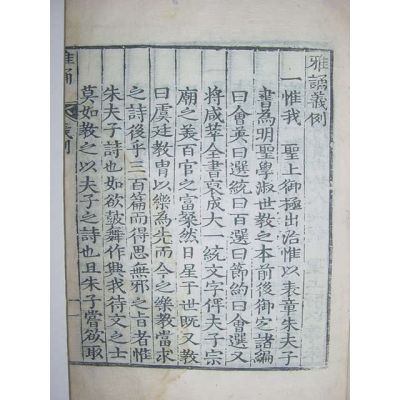 雅誦義例
一惟我 聖上御極出治惟以表章朱夫子
書為明聖學淑世教之本前後御定諸編
曰會英曰選統曰百選曰節約曰會選又
將咸萃全書裒成大一統文字俾夫子宗
廟之美百官之富粲然日星于世既又
曰虞廷教胄以樂為先而今之樂教當求
之詩後乎三百篇而得思無邪之旨者惟
朱夫子詩也如欲鼓舞作興我待文之士
莫如教之以夫子之詩也且朱子嘗欲取
雅誦 義例